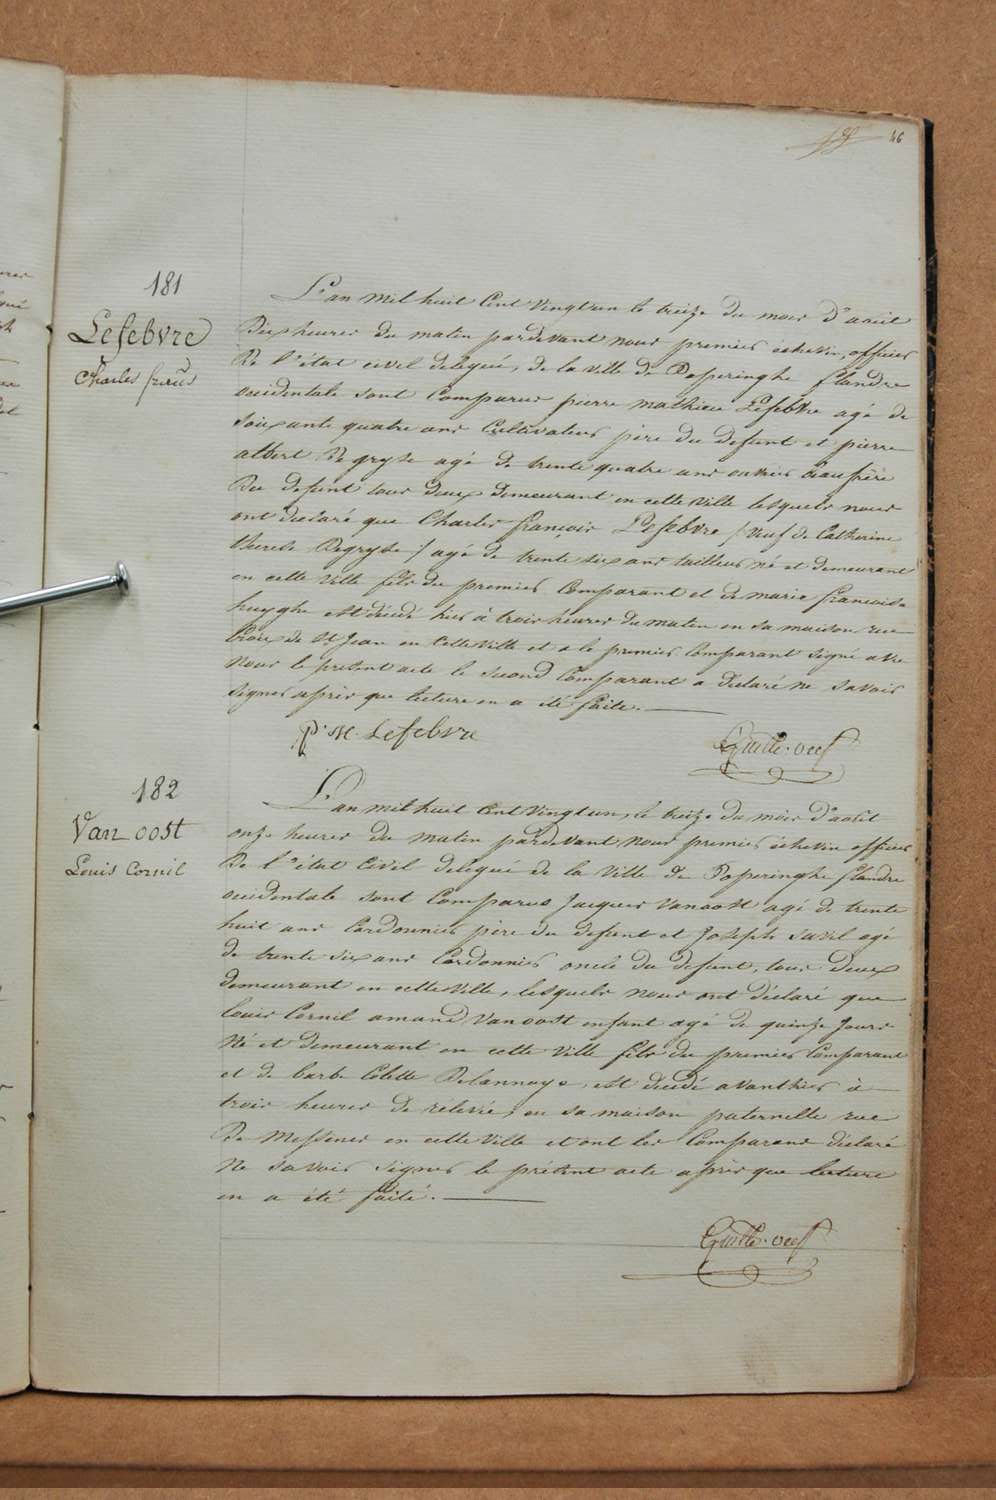 46
181
Lefebvre
Charles
L'an mil huit Cent vingt un le treize du mois d'août
Dix heures du matin pardevant nous premier échevin, officier
De l'état civil delegué, de la ville de Poperinghe flandre
occidentale sont Comparus pierre mathieu Lefebvre agé de
soixante quatre ans Cultivateur père du defunt et pierre
albert Degryse agé de trente quatre ans ouvrier beau frère
Du defunt tous deux demeurant en cette ville lesquels nous
ont declaré que Charles françois Lefebvre / veuf de Catherine
Degryse / agé de trente six ans tailleur né et demeurant
en cette ville fils du premier Comparant et de marie françoise
huyghe est décédé hier à trois heures du matin en sa maison rue
de St Jean en cette ville et a le premier Comparant signé avec
Nous le présent acte le second Comparant a déclaré ne savoir
signer après que lecture en a été faite.
P. M. Lefebvre
182
Van oost
Louis Cornil
L'an mil huit Cent vingt un, le treize du mois d'août
onze heures du matin pardevant nous premier échevin officier
De l'état Civil delegué de la Ville de Poperinghe flandre
occidentale sont Comparus Jacques Vanoost agé de trente
huit ans Cordonnier père du defunt et Joseph agé
de trente six ans Cordonnier oncle du defunt, tous deux
demeurant en cette ville, lesquels nous ont déclaré que
louis Cornil amand Vanoost enfant agé de quinze jours
Né et demeurant en cette ville fils du premier Comparant
et de barbe Colette Delannoye, est décédé avanthier à
trois heures de rélevée, en sa maison paternelle rue
De Messines en cette ville et ont les Comparans déclaré
Ne savoir signer le présent acte après que lecture
en a été faite.